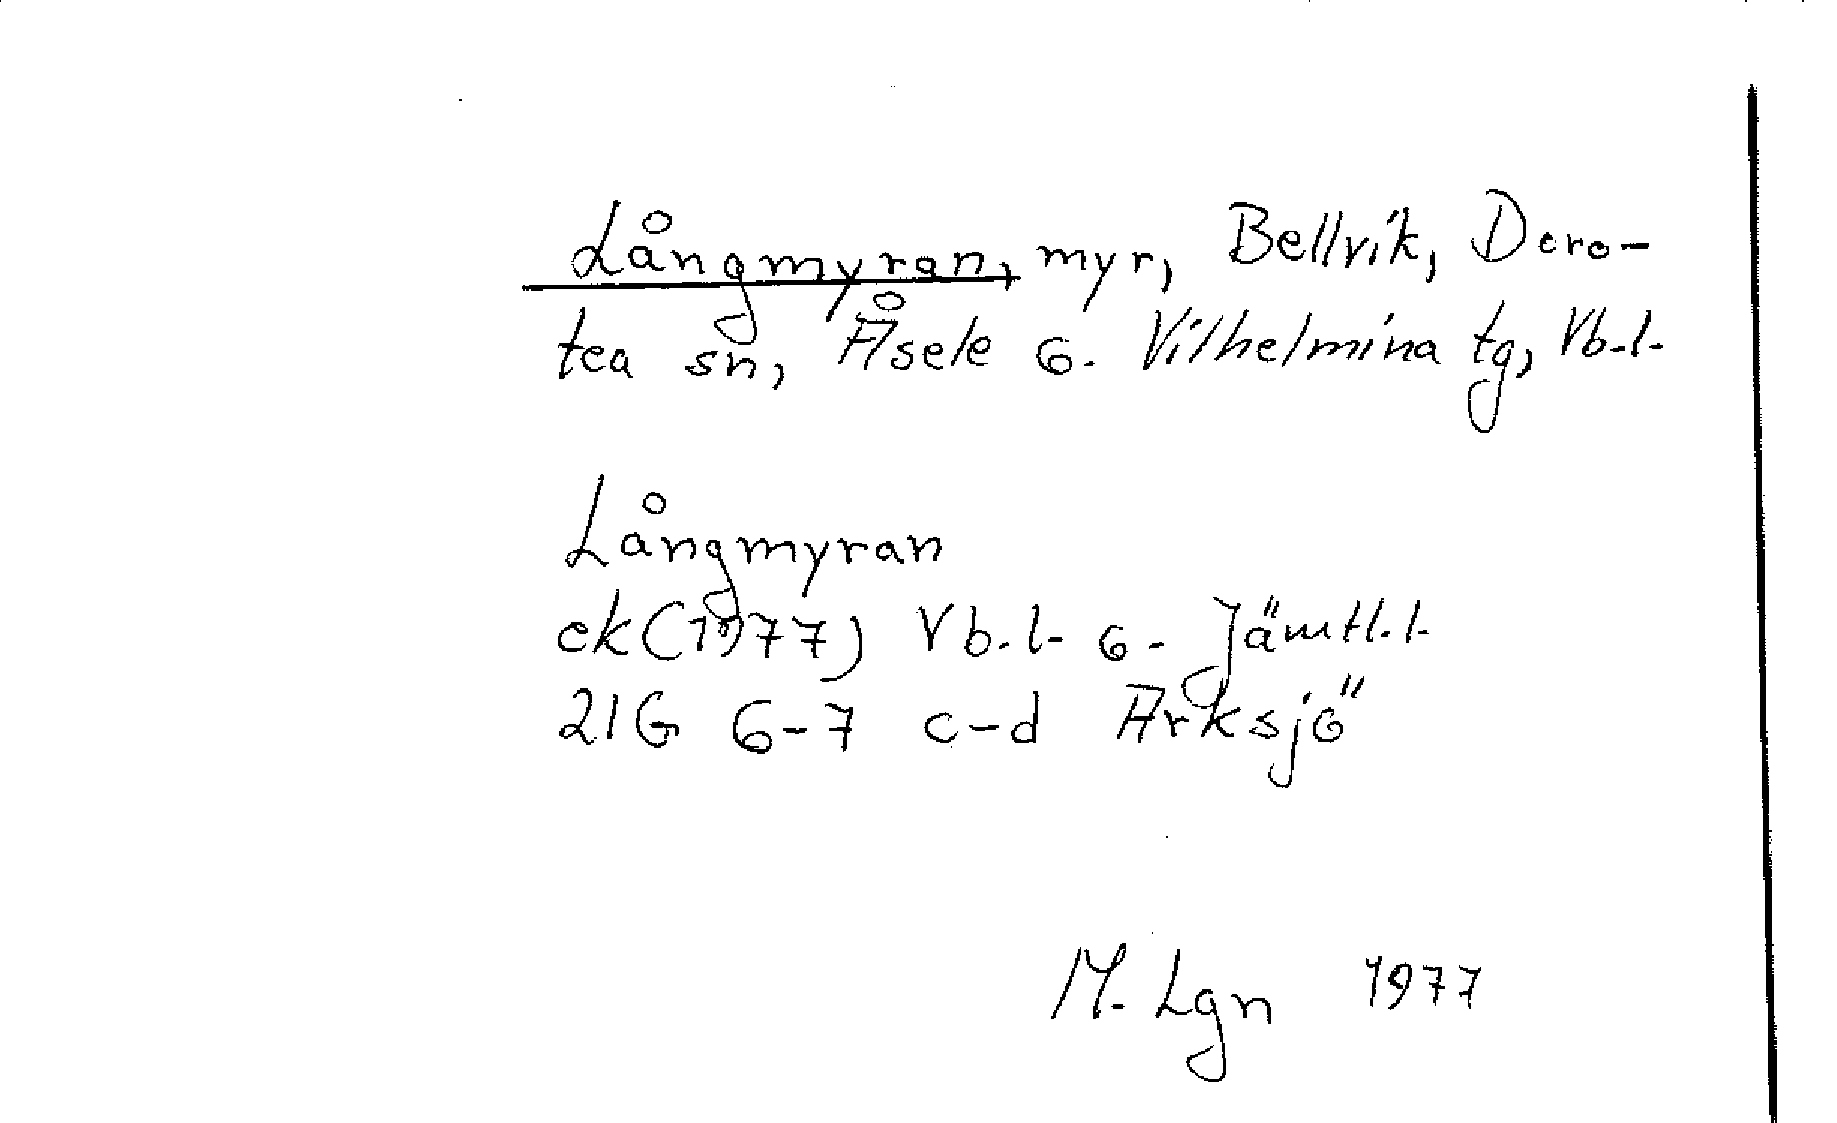 Långmyran, myr, Bellvik, Doro-
tea sn, Åsele o. Vilhelmina tg, Vb.l.
Långmyran
ek(1977) Vb.l. o. Jämtl.l.
21G 6-7 c-d Arksjö
M. Lgn 1977